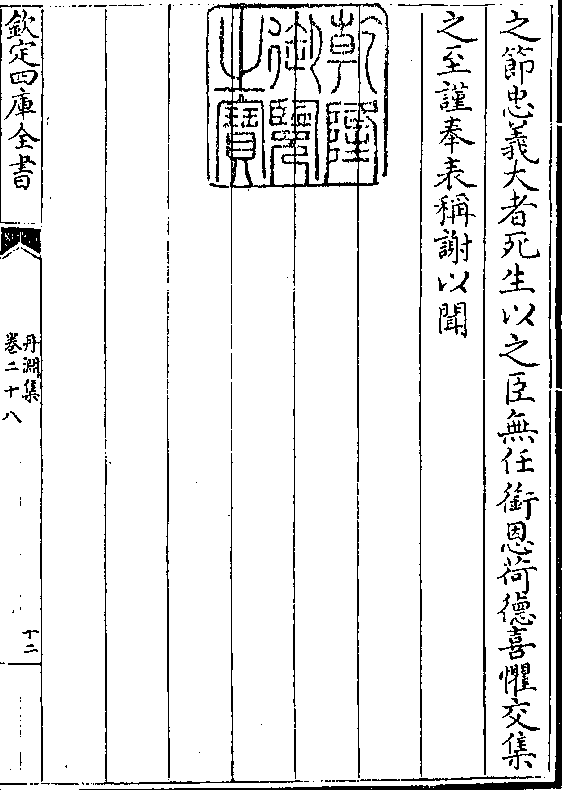 之節忠義大者死生以之臣無任銜恩荷德喜懼交集
之至謹奉表稱謝以聞
乾隆
御覽
之寶
欽定四庫全書
丹淵集
卷二十八
十二